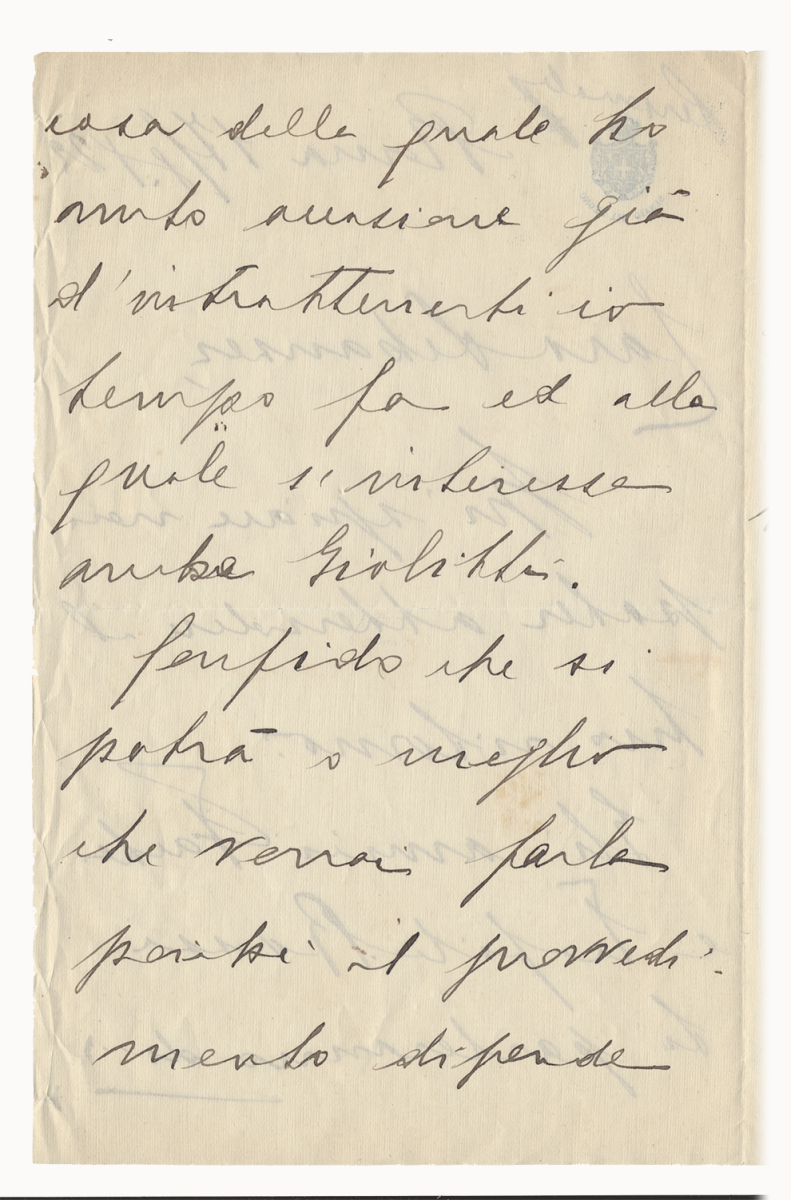 cosa della quale ho
avuto occasione già
d'intrattenerti io
tempo fa ed alla
quale s'interessa
anche Giolitti.
Confido che si
potrà o meglio
che vorrai farla
perché il provvedi-
mento dipende